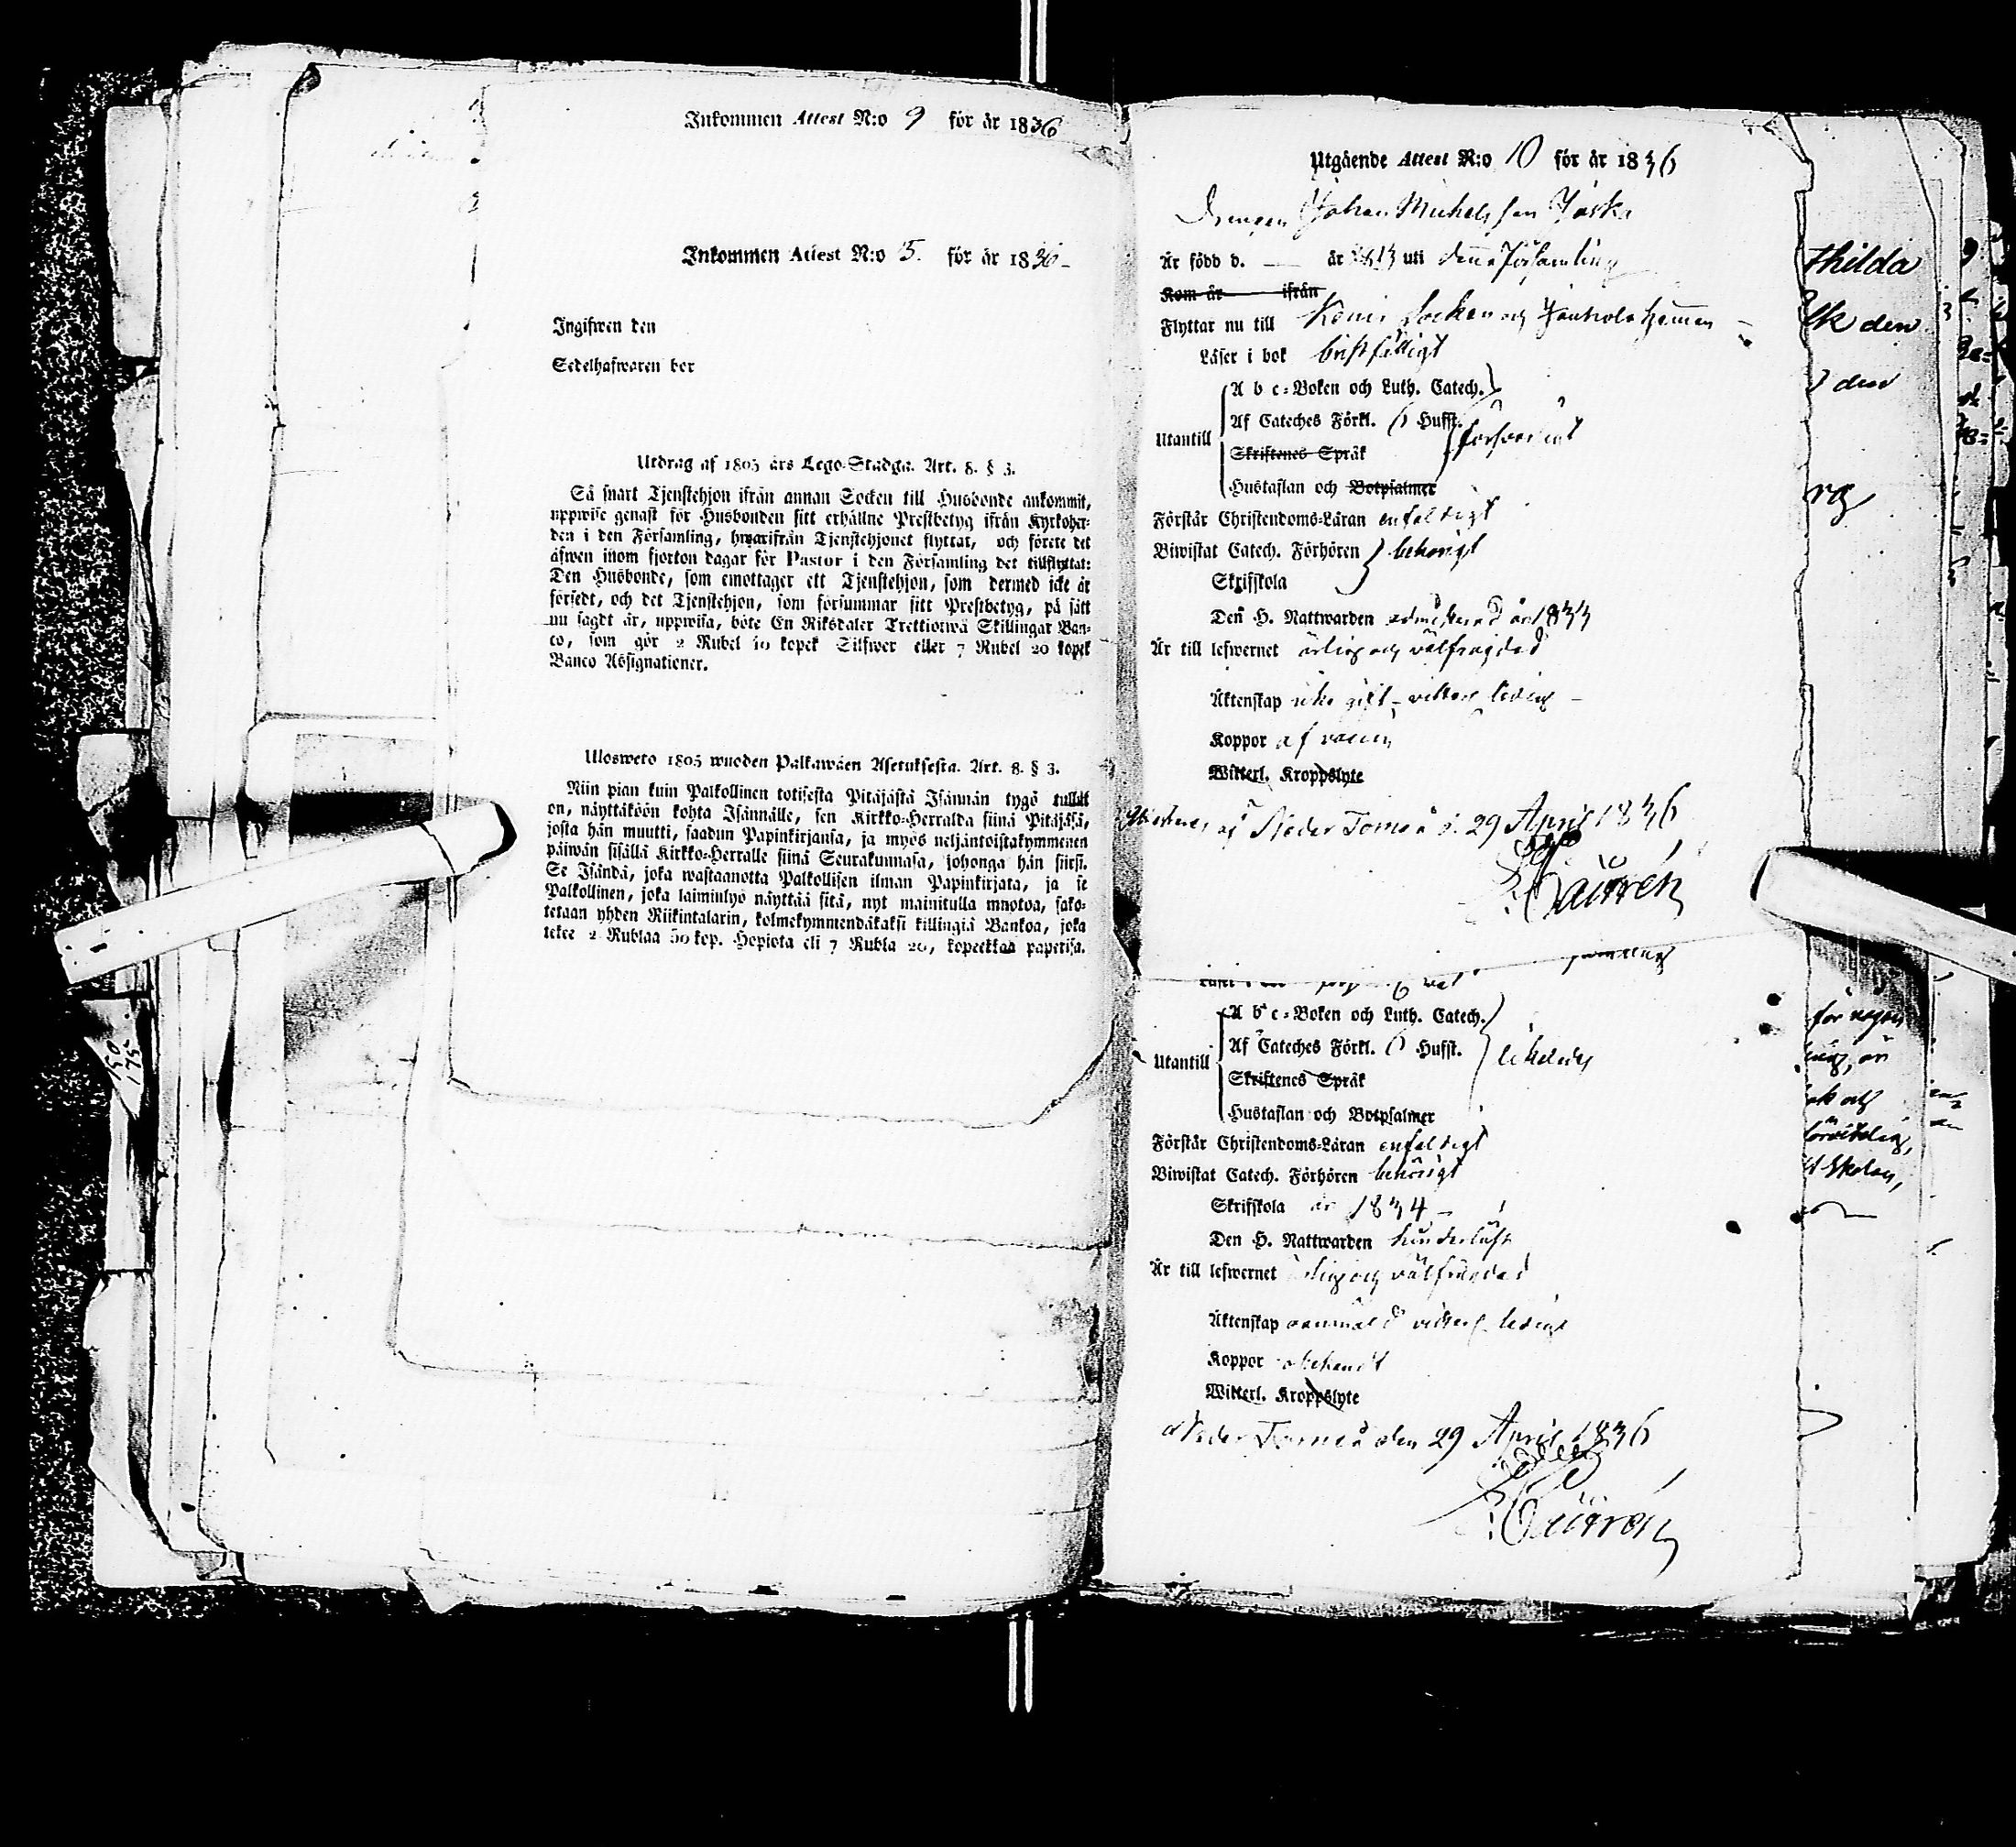 Inkommen Attest N:o 9 för år 1836
Inkommen Attest N:o 5. för år 1836 –
Ingifwen den
Sedelhafwaren bor
Utdrag af 1805 års Lego-Stadga. Art. 8. § 3.
Så snart Tjenstehjon ifrån annan Socken till Husbonde ankommit,
uppwise genast för Husbonden sitt erhållne Prestbetyg ifrån Kyrkoher-
den i den Församling, hwarifrån Tjenstehjonet flyttat, och förete det
äfwen inom fjorton dagar för Pastor i den Församling det tillflyttat:
Den Husbonde, som emottager ett Tjenstehjon, som dermed icke är
försedt, och det Tjenstehjon, som försummar sitt Prestbetyg, på sätt
nu sagdt är, uppwisa, böte En Riksdaler Trettiotwå Skillingar Ban-
co, som gör 2 Rubel 50 kopek Silfwer eller 7 Rubel 20 kopek
Banco Assignationer.
Ulosweto 1805 wuoden Palkawäen Asetuksesta. Art. 8. § 3.
Niin pian kuin Palkollinen totisesta Pitäjästä Isännän tygö tullut
on, näyttäköön kohta Isännälle, sen Kirkko-Herralda siinä Pitäjäsä,
josta hän muutti, saadun Papinkirjansa, ja myös neljäntoistakymmenen
päiwän sisällä Kirkko-Herralle siinä Seurakunnasa, johonga hän siirsi.
Se Isändä, joka wastaanotta Palkollisen ilman Papinkirjata, ja se
Palkollinen, joka laiminlyö näyttää sitä, nyt mainitulla muotoa, sako-
tetaan yhden Riikintalarin, kolmekymmendäkaksi killingiä Bankoa, joka
tekee 2 Rublaa 50 kop. Hopiota eli 7 Rubla 20, kopeekkaa paperisa.
150
175
Utgående Attest N:o 10 för år 1836
Drengen Johan Michelsson Jaska
Är född d. — år 1813 uti denna Församling
Kom år ifrån
Flyttar nu till Kemi Socken och hemman –
Läser i bok bristfälligt
A b c-Boken och Luth. Catech.
Af Cateches Förkl. 6 Hufst.
Utantill försvarligt
Skriftenes Språk
Hustaflan och Botpsalmer
Förstår Christendoms-Läran enfaldigt
Biwistat Catech. Förhören behörigt
Skrifskola
Den H. Nattwarden admitterad år 1833
Är till lefwernet ärlig och välfrägdad
Äktenskap icke gift – vitterl. ledig –
Koppor af vaccin
Witterl. Kroppslyte
af Neder Torneå d. 29 April 1836
thilda
lk den
den
rg
A b c-Boken och Luth. Catech.
Af Cateches Förkl. 6 Hufst.
Utantill
Skriftenes Språk
Hustaflan och Botpsalmer
Förstår Christendoms-Läran enfaldigt
Biwistat Catech. Förhören behörigt
Skrifskola år 1834 –
Den H. Nattwarden
Är till lefwernet ärlig och välfrägdad
Äktenskap oanmäld vitterl. ledig
Koppor obekandt
Witterl. Kroppslyte
Neder Torneå den 29 April 1836
för någon
ok och